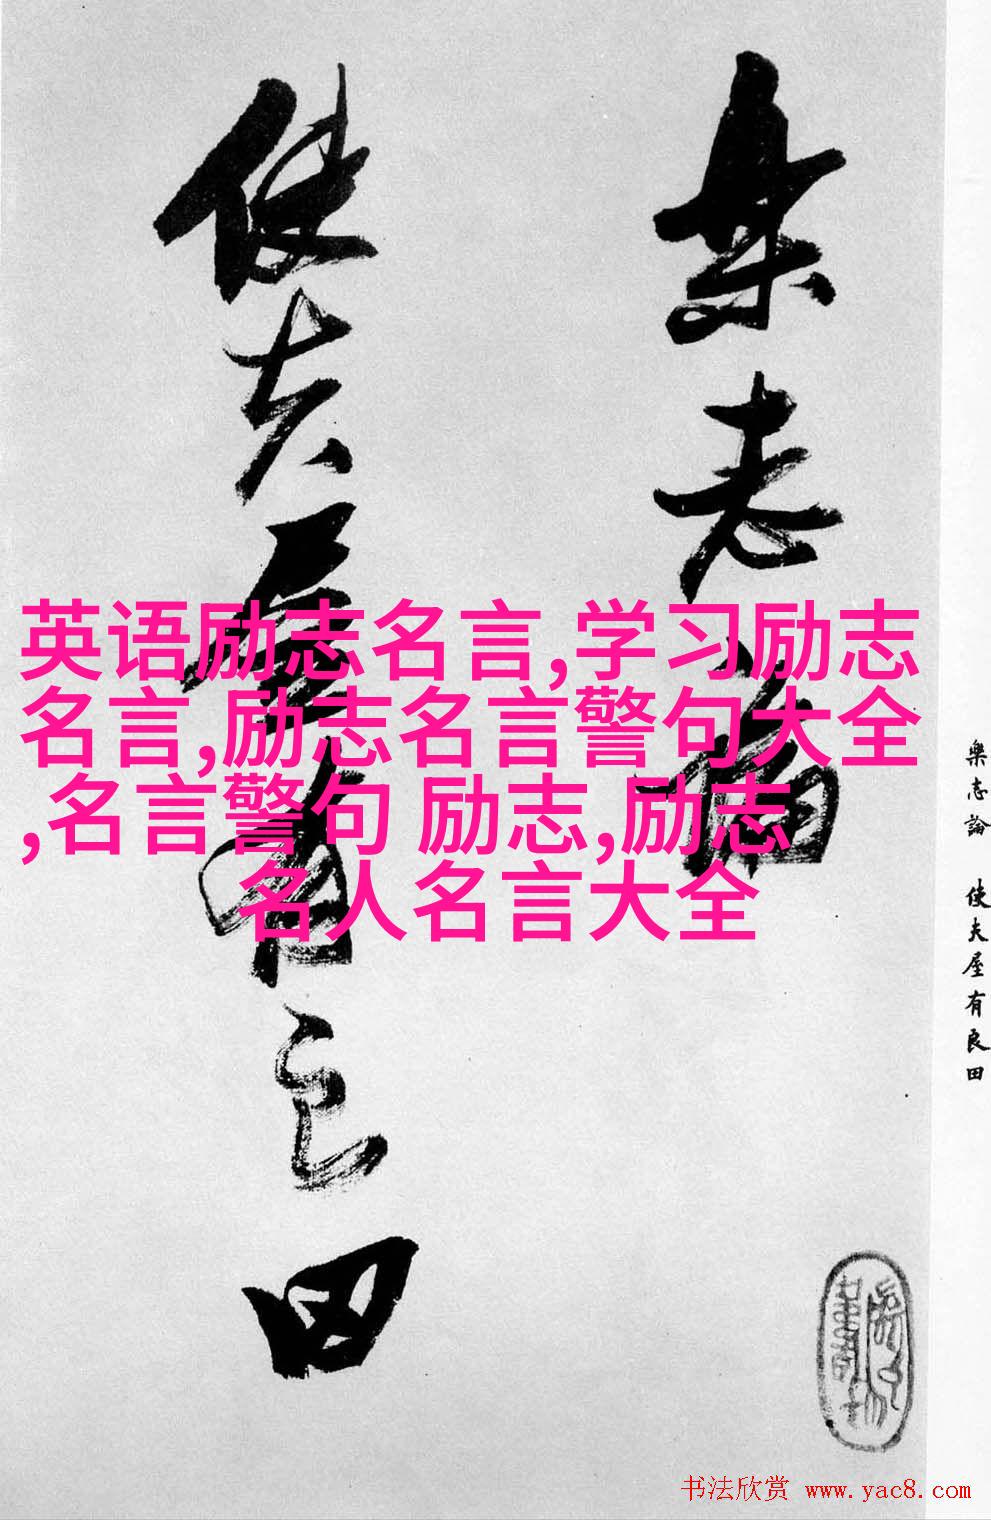 樂志論
使夫屋有良田
英语励志名言,学习励志
名言,励志名言警句大全
,名言警句 励志,励志
名人名言大全
樂志論 使夫屋有良田
书法欣赏 www.yac8.com